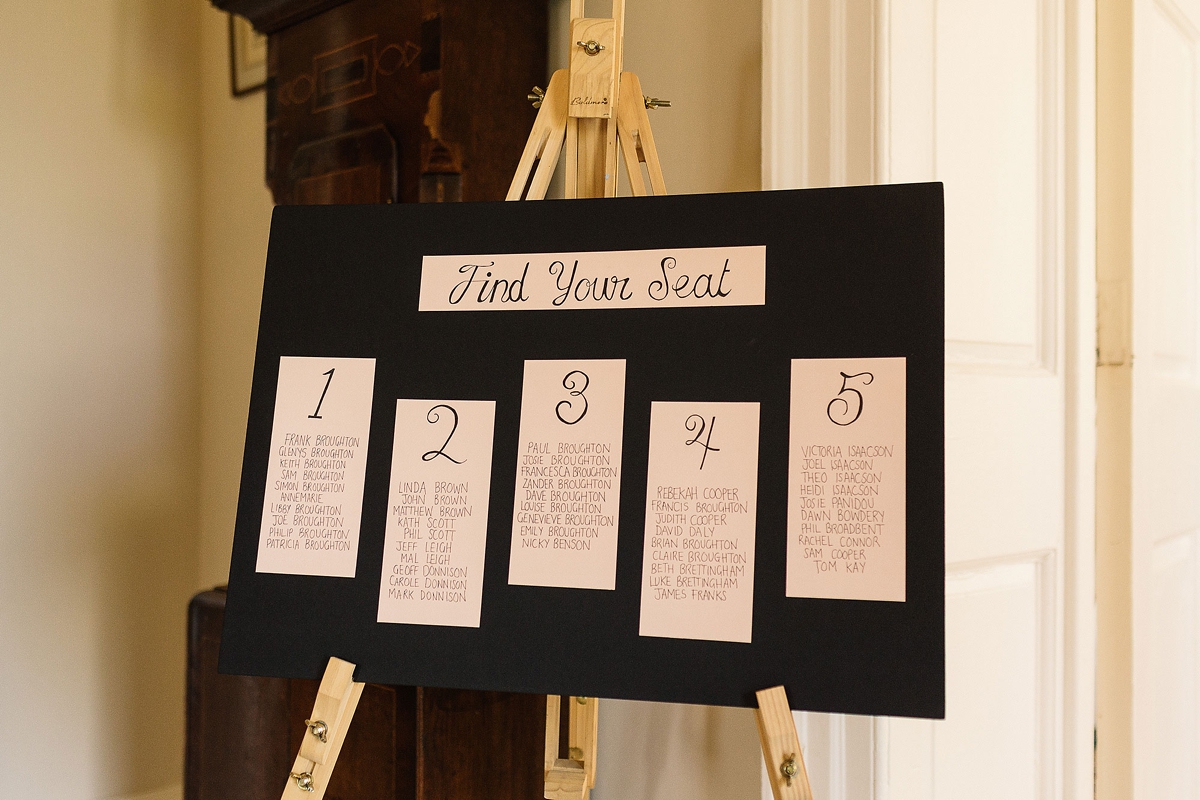 Find Your Seat
1
FRANK BROUGHTON
GLENYS BROUGHTON
KEITH BROUGHTON
SAM BROUGHTON
SIMON BROUGHTON
ANNEMARIE
LIBBY BROUGHTON
JOE BROUGHTON
PHILIP BROUGHTON
PATRICIA BROUGHTON
2
LINDA BROWN
JOHN BROWN
MATTHEW BROWN
KATH SCOTT
PHIL SCOTT
JEFF LEIGH
MAL LEIGH
GEOFF DONNISON
CAROLE DONNISON
MARK DONNISON
3
PAUL BROUGHTON
JOSIE BROUGHTON
FRANCESCA BROUGHTON
ZANDER BROUGHTON
DAVE BROUGHTON
LOUISE BROUGHTON
GENEVIEVE BROUGHTON
EMILY BROUGHTON
NICKY BENSON
4
REBEKAH COOPER
FRANCIS BROUGHTON
JUDITH COOPER
DAVID DALY
BRIAN BROUGHTON
CLAIRE BROUGHTON
BETH BRETTINGHAM
LUKE BRETTINGHAM
JAMES FRANKS
5
VICTORIA ISAACSON
JOEL ISAACSON
THEO ISAACSON
HEIDI ISAACSON
JOSIE PANIDOU
DAWN BOWDERY
PHIL BROADBENT
RACHEL CONNOR
SAM COOPER
TOM KAY